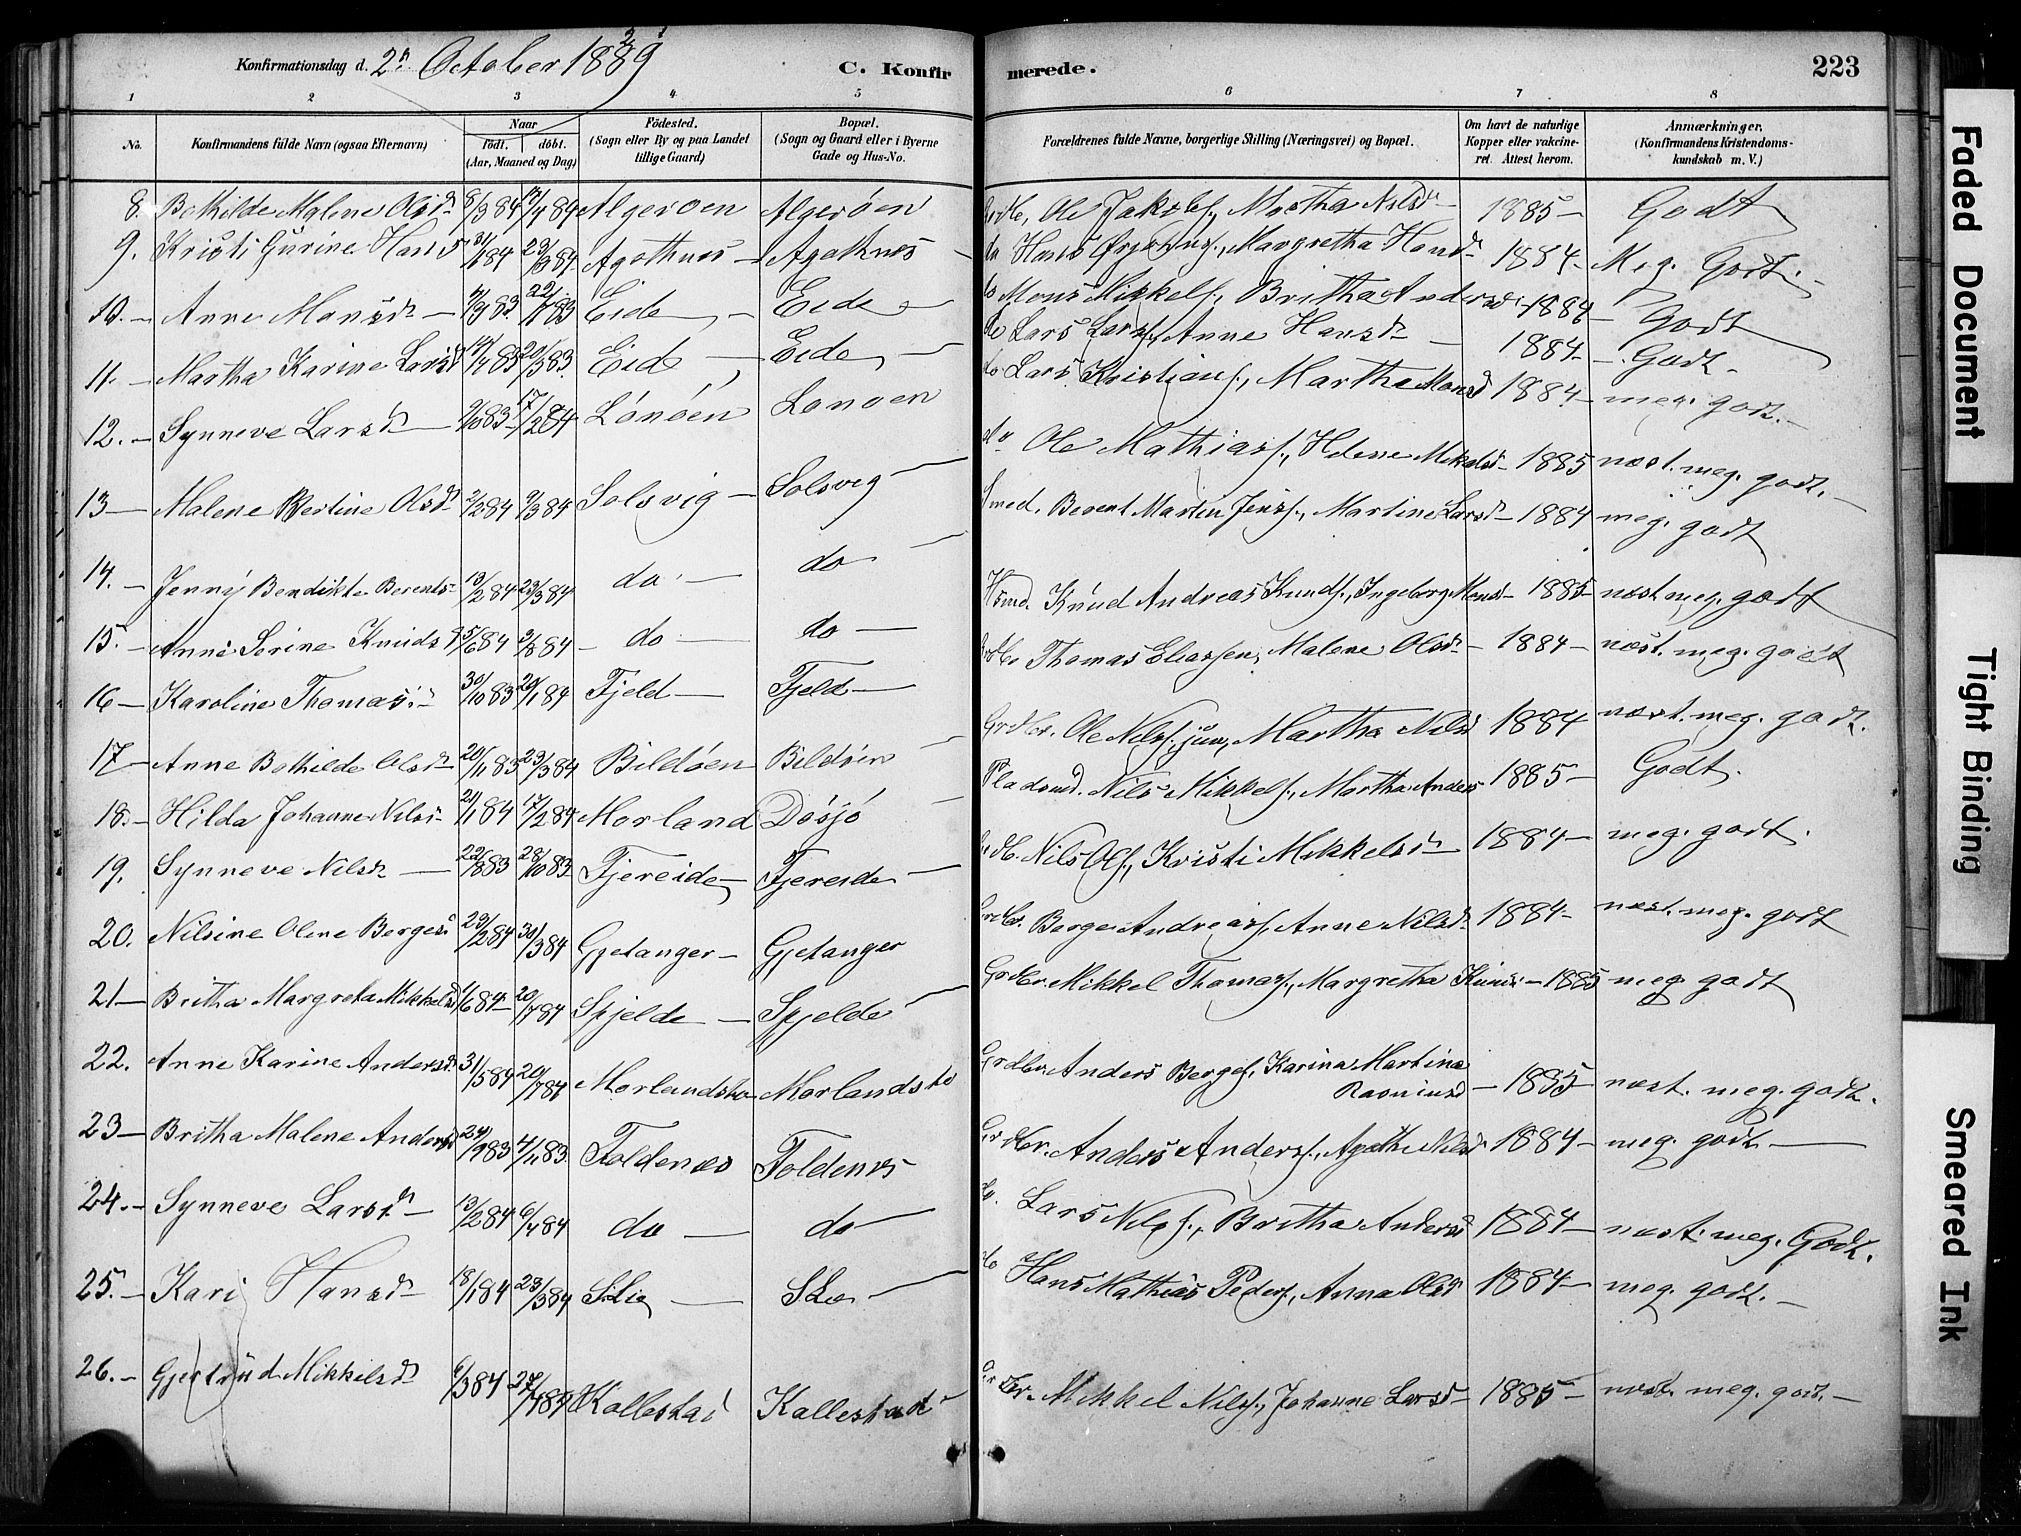 Konfirmationsdag d. 2n October 1889
C. Konfirmerede.
223
1 2 3 4 5 6 7 8
No. Konfirmandens fulde Navn (ogsaa Efternavn)
Naar
født. døbt.
(Aar, Maaned og Dag)
Fødested.
(Sogn eller By og paa Landet tillige Gaard)
Bopæl.
(Sogn og Gaard eller i Byerne Gade og Hus-No.
Forældrenes fulde Navne, borgerlige Stilling (Næringsvei) og Bopæl.
Om havt de naturlige Kopper eller vakcineret. Attest herom.
Anmærkninger.
(Konfirmandens Kristendomskundskab m. V.)
8. Bothilde Malene Olsd 8/3 84 /4 84 Algerøen Algerøen Ole Jakobs., Martha Nilsd 1885 – Godt
9. Kristi Gurine Hans 84 23/3 84 Agothnes – Agothnes – do Hans, Margretha Hansd 1884 – Meg. Godt.
10. – Anne Monsd – /9 83 22/ 83 Eide – Eide – do Mons Mikkels., Britha Andersd – 1884 – Godt
11. – Martha Karine Larsd 83 20/5 83. Eide – Eide – do Lars Lars., Anne Hansd – 1884 – Godt –
12. – Synneve Larsd /10 83 – 17/2 84 Lønøen Lønøen do Lars Kristians., Martha Monsd 1884 – meg. godt. –
13 – Malene Bertine Olsd 2/2 84 9/3 84 Solsvig – Solsvig – do Ole Mathias., Helene Mikkelsd – 1885 næst. meg. godt. –
14. – Jenny Bendikte Berents – 13/2 84 23/3 84 do. – do – Smed. Berent Martin Jens., Martine Larsd – 1884 meg. godt
15. – Anne Serine Knudsd 5/6 84 3/8 84 – do – do – Husmd. Knud Andreas Knuds., Ingeborg Monsd – 1885 – næst meg. godt
16 – Karoline Thomas. – 30/10 83 20/1 84 Fjeld – Fjeld – Thomas Eliassen, Malene Olsd – 1884 – næst. meg. godt
17 – Anne Bothilde Olsd 20/11 83 23/3 84 Bildøen Bildøen – Grdbr. Ole Nils. jun., Martha Nilsd 1884 næst. meg. godt.
18. – Hilda Johanne Nils – 21/1 84 17/2 84 Morland Døsjø – Pladsmd. Nils Mikkels., Martha Anders 1885 – Godt.
19. Synneve Nilsd – 22/8 83 28/10 83 Fjereide – Fjereide – Nils Ols., Kristi Mikkelsd – 1884 – meg. godt.
20. Nilsine Olene Bergesd 29/2 84 30/3 84 Gjetanger – Gjetanger Grdbr. Berge Andreas., Anne Nilsd 1884 – næst. meg. godt
21 – Britha Margreta Mikkelsd /6 84 – 20/7 84 Spjelde – Spjelde – Grdbr. Mikkel Thomas., Margretha Knuds – 1885 meg. godt
22. Anne Karine Andersd. 31/5 84 20/7 84 Morlandstø – Morlandstø Grdbr. Anders Berges., Karina Martina Rasmusd – 1885 – næst. meg. godt.
23 – Britha Malene Andersd 24/9 83 4/11 83 Foldenæs Foldenæs Grdbr. Anders Anders., Agathe Nilsd 1884 – meg. godt. –
24. – Synneve Larsd – 13/2 84 6/4 84 do – do – do. Lars Nils., Britha Andersd 1884 – næst. meg. Godt.
25. – Kari Hansd 18/1 84 23/3 84 S. Lie – S. Lie – do Hans Mathias Peders., Anna Olsd 1884 – meg. godt. –
26. – Gjertrud Mikkelsd 6/3 84 27/4 84 Kallestad Kallestad – Grdbr. Mikkel Nils., Johanne Larsd – 1885 – næst. meg. godt. –
Faded Document
Tight Binding
Smeared Ink